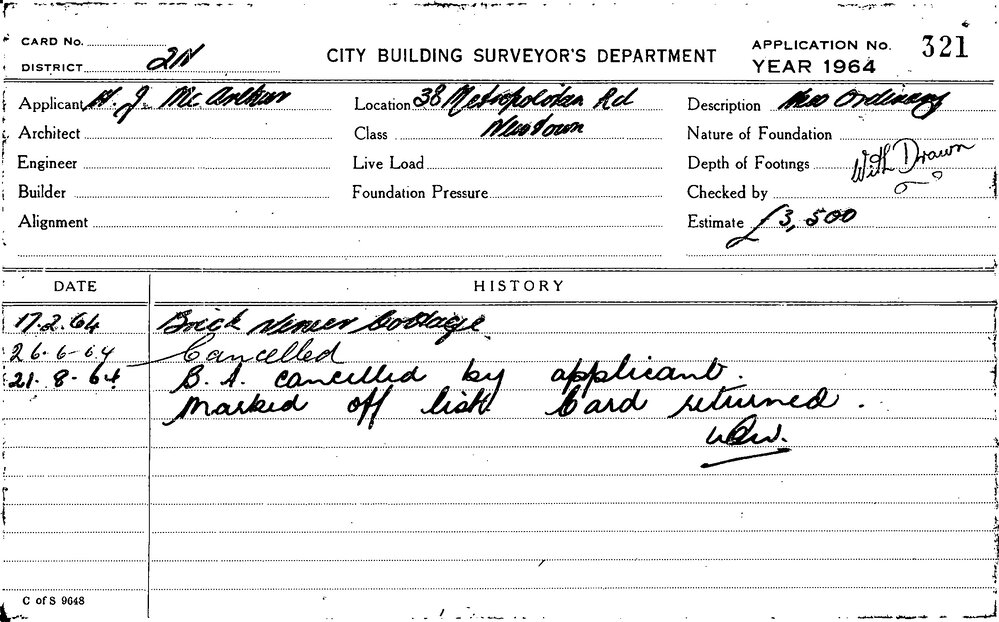 CARD No.
DISTRICT 2N
CITY BUILDING SURVEYOR'S DEPARTMENT
APPLICATION No. 321
YEAR 1964
Applicant H. J. McArthur Location 38 Metropolitan Rd Description New Ordinary
Architect Class Newtown Nature of Foundation
Engineer Live Load Depth of Footings With Drawn
Builder Foundation Pressure Checked by
Alignment Estimate £3,500
DATE HISTORY
17.2.64 Brick Veneer Cottage
26-6-64 Cancelled
21-8-64 B.A. cancelled by applicant.
Marked off list Card returned.
C of S 9648